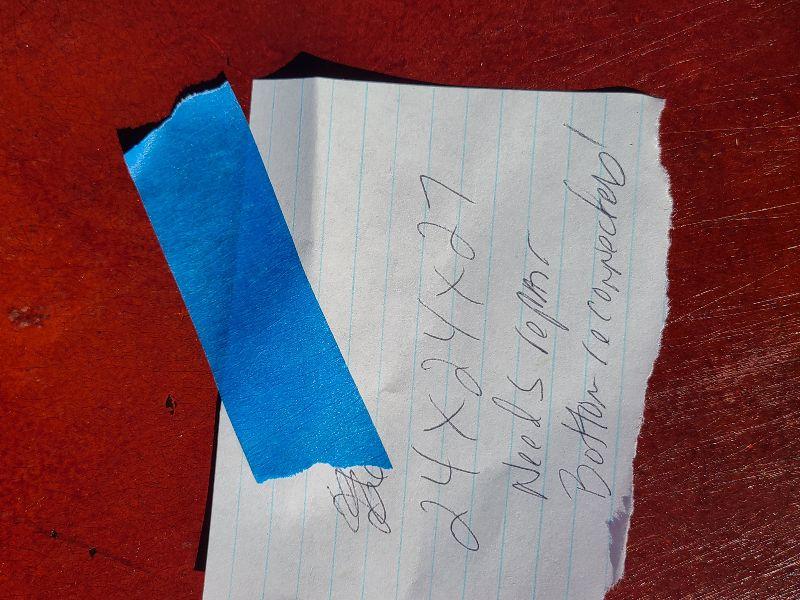 24 x 24 x 27
Needs repair
Bottom reconnected!